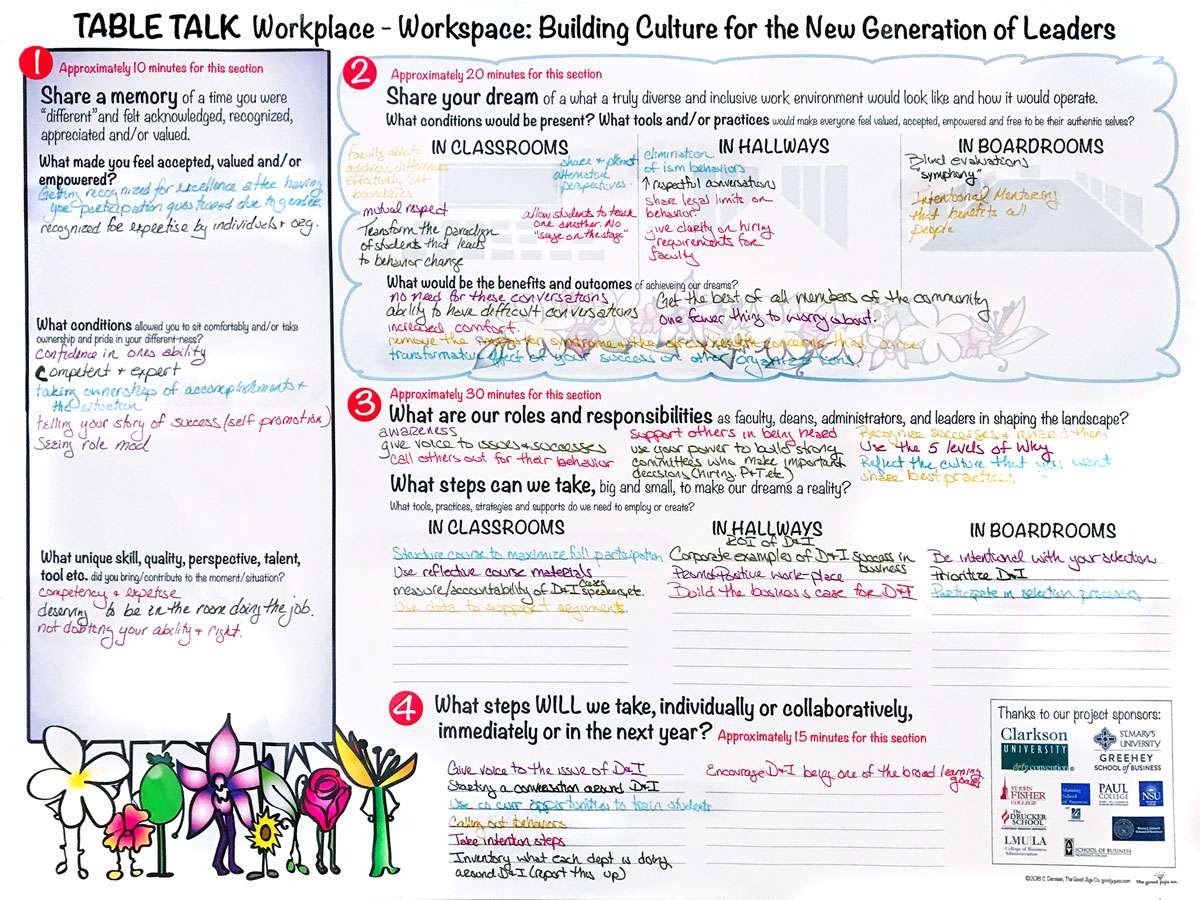 TABLE TALK Workplace - Workspace: Building Culture for the New Generation of Leaders
1 Approximately 10 minutes for this section
Share a memory of a time you were
"different" and felt acknowledged, recognized,
appreciated and/or valued.
What made you feel accepted, valued and/or
empowered?
Getting recognized for excellence after having
your participation questioned due to gender
recognized for expertise by individuals + org.
What conditions allowed you to sit comfortably and/or take
ownership and pride in your different-ness?
confidence in ones ability
Competent + expert
taking ownership of accomplishments +
the situation
telling your story of success (self promotion)
Seeing role mod
What unique skill, quality, perspective, talent,
tool etc. did you bring/contribute to the moment/situation?
competency + expertise
deserving to be in the room doing the job.
not doubting your ability + right.
2 Approximately 20 minutes for this section
Share your dream of a what a truly diverse and inclusive work environment would look like and how it would operate.
What conditions would be present? What tools and/or practices would make everyone feel valued, accepted, empowered and free to be their authentic selves?
IN CLASSROOMS
faculty able to
address differences
effectively set
boundaries
share + plant
alternative
perspectives.
mutual respect
Transform the paradigm
of students that leads
to behavior change
allow students to teach
one another. No
"sage on the stage"
IN HALLWAYS
elimination
of ism behaviors
respectful conversations
share legal limits on
behavior.
give clarity on hiring
requirements for
faculty
IN BOARDROOMS
Blind evaluations
"symphony"
Intentional Mentoring
that benefits all
people
What would be the benefits and outcomes of achieving our dreams?
no need for these conversations
ability to have difficult conversations
increased comfort.
Get the best of all members of the community
one fewer thing to worry about.
remove the imposter syndrome + the health concerns that
transformative effect of your success on other organizations.
3 Approximately 30 minutes for this section
What are our roles and responsibilities as faculty, deans, administrators, and leaders in shaping the landscape?
awareness
give voice to issues + successes
call others out for their behavior
support others in being heard
use your power to build strong
committees who make important
decisions (hiring, P+T etc)
Recognize successes + them
Use the 5 levels of Why
Reflect the culture that you want
share best practices
What steps can we take, big and small, to make our dreams a reality?
What tools, practices, strategies and supports do we need to employ or create?
IN CLASSROOMS
Structure course to maximize full participation
Use reflective course materials
measure/accountability of D+I cases speakers, etc.
Use data to support arguments.
IN HALLWAYS
ROI of D+I
Corporate examples of D+I success in
business
Positive work-place
Build the business case for D+I
IN BOARDROOMS
Be intentional with your selection
Prioritize D+I
Participate in selection processes
4 What steps WILL we take, individually or collaboratively,
immediately or in the next year? Approximately 15 minutes for this section
Give voice to the issue of D+I
Starting a conversation around D+I
Use co curr opportunities to train students
Calling out behaviors
Take intention steps
Inventory what each dept is doing
around D+I (report this up)
Encourage D+I being one of the broad learning
goals
Thanks to our project sponsors:
Clarkson
UNIVERSITY
defy convention
ST. MARY'S
UNIVERSITY
GREEHEY
SCHOOL of BUSINESS
ST. JOHN
FISHER
COLLEGE
Manning
School
of Business
PAUL
COLLEGE
NSU
The
DRUCKER
SCHOOL
LMU LA
College of Business
Administration
SCHOOL OF BUSINESS